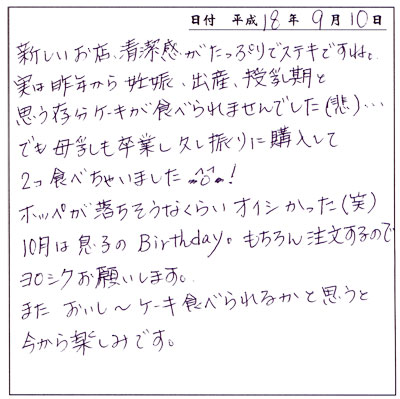 日付 平成18年9月10日
新しいお店、清潔感がたっぷりでステキですね。
実は昨年から妊娠、出産、授乳期と
思う存分ケーキが食べられませんでした(悲)…
でも母乳も卒業し久し振りに購入して
2コ食べちゃいました ^o^!
ホッペが落ちそうなくらいオイシかった(笑)
10月は息子のBirthday。もちろん注文するので
ヨロシクお願いします。
また おいし〜ケーキ食べられるかと思うと
今から楽しみです。